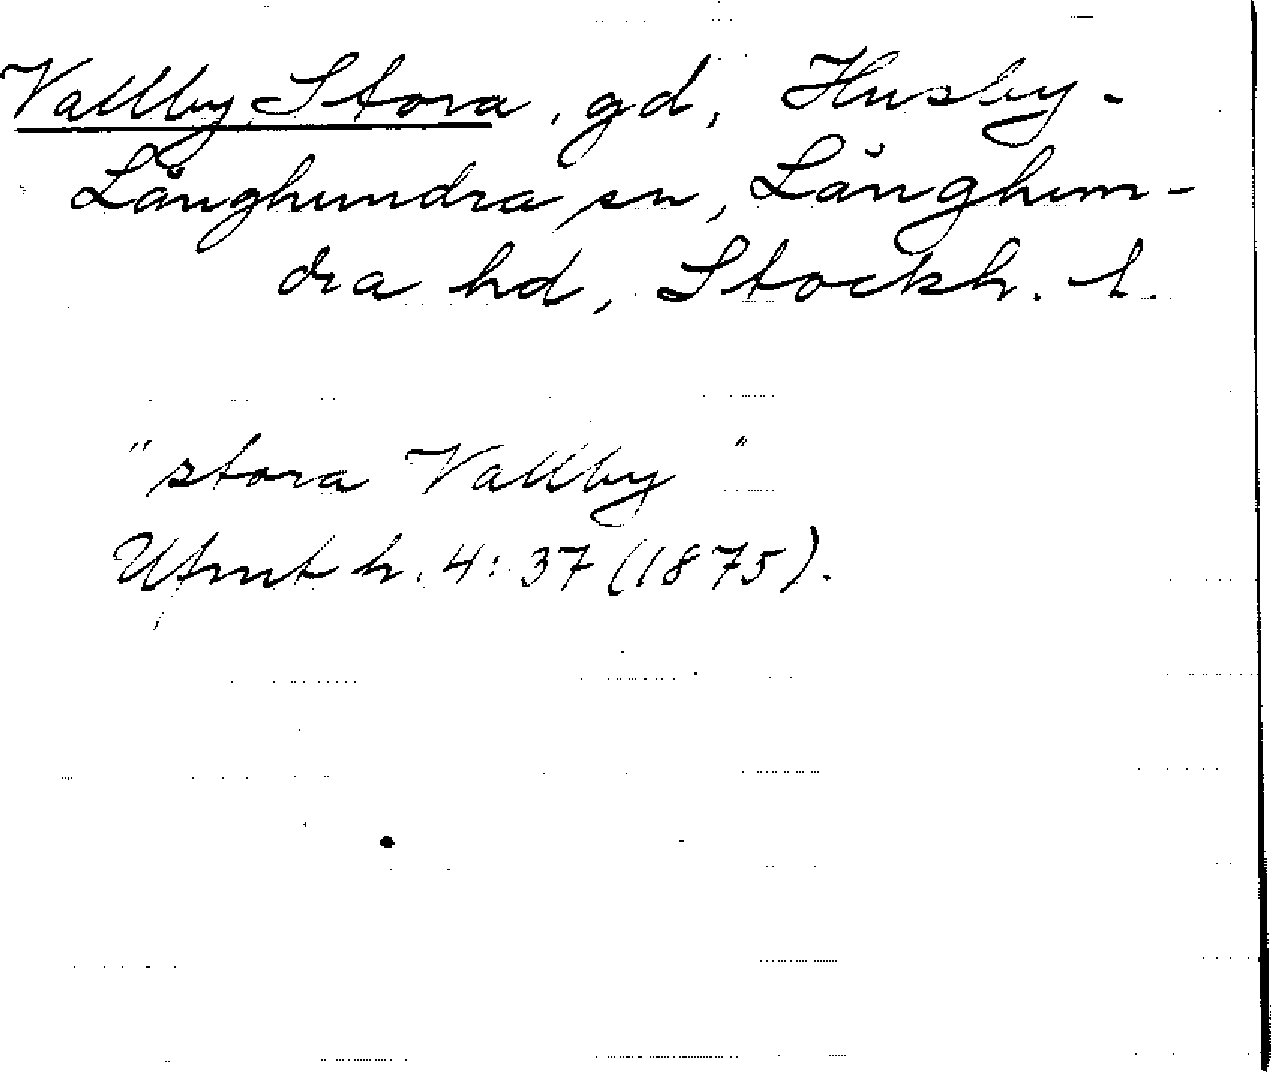 Vallby, Stora, gd, Husby-
Långhundra sn, Långhun-
dra hd, Stockh. l.
"stora Vallby"
h. 4:37 (1875).